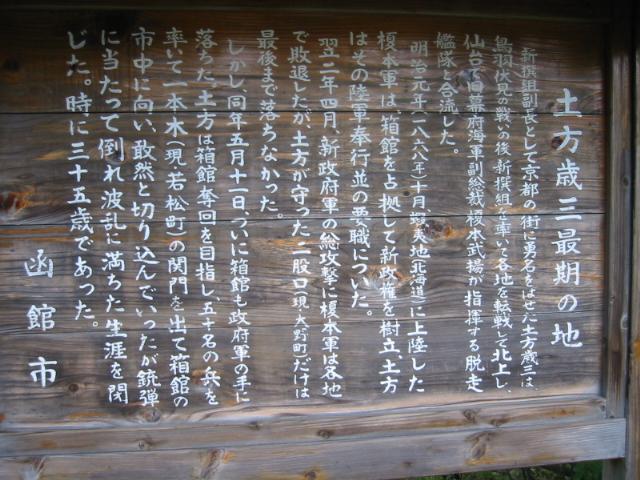 土方歳三最期の地
新撰組副長として京都の街に勇名をはせた土方歳三は、
鳥羽伏見の戦いの後、新撰組を率いて各地を転戦して北上し、
仙台で旧幕府海軍副総裁榎本武揚が指揮する脱走
艦隊と合流した。
明治元年(一八六八年)十月、蝦夷地(北海道)に上陸した
榎本軍は、箱館を占拠して新政権を樹立、土方
はその陸軍奉行並の要職についた。
翌二年四月、新政府軍の総攻撃に榎本軍は各地
で敗退したが、土方が守った二股口(現・大野町)だけは
最後まで落ちなかった。
しかし、同年五月十一日、ついに箱館も政府軍の手に
落ちた。土方は箱館奪回を目指し、五十名の兵を
率いて一本木(現若松町)の関門を出て箱館の
市中に向い、敢然と切り込んでいったが銃弾
に当たって倒れ波乱に満ちた生涯を閉
じた。時に三十五歳であった。
函館市